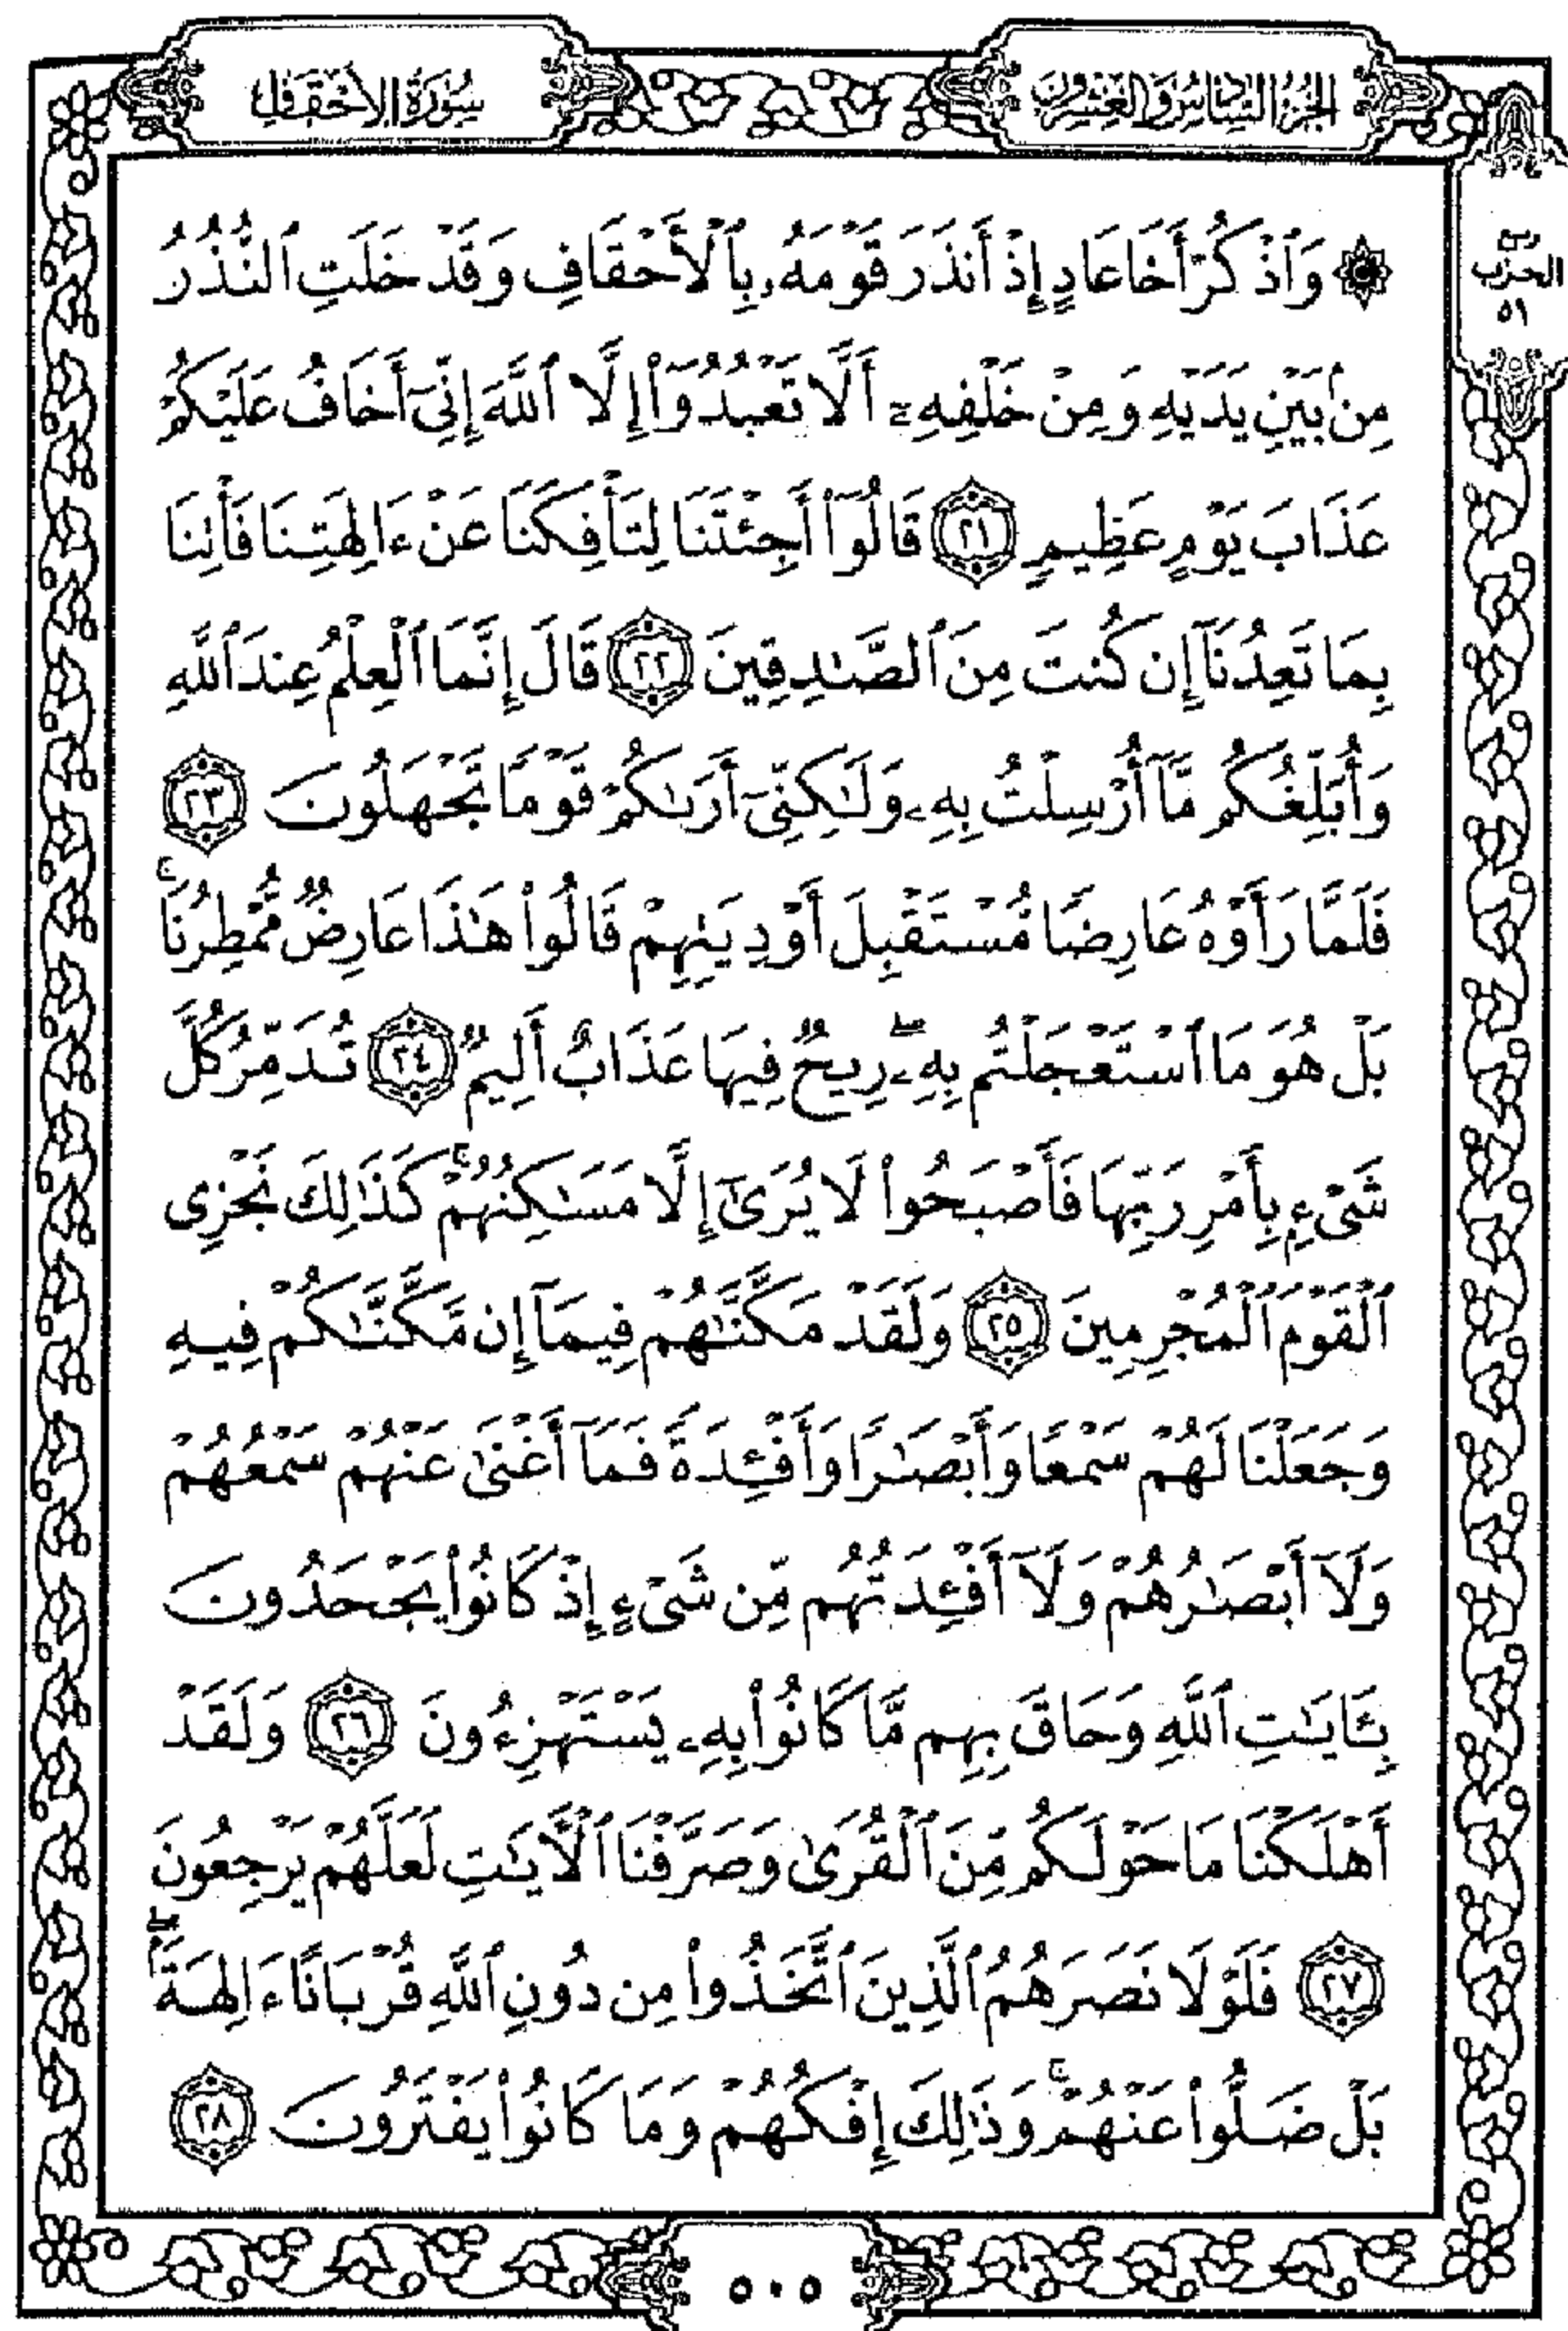 الجزء السادس والعشرون
سورة الأحقاف
ربع
الحزب
٥١
۞ وَٱذْكُرْ أَخَا عَادٍ إِذْ أَنذَرَ قَوْمَهُۥ بِٱلْأَحْقَافِ وَقَدْ خَلَتِ ٱلنُّذُرُ
مِنۢ بَيْنِ يَدَيْهِ وَمِنْ خَلْفِهِۦٓ أَلَّا تَعْبُدُوٓا۟ إِلَّا ٱللَّهَ إِنِّىٓ أَخَافُ عَلَيْكُمْ
عَذَابَ يَوْمٍ عَظِيمٍ ٢١ قَالُوٓا۟ أَجِئْتَنَا لِتَأْفِكَنَا عَنْ ءَالِهَتِنَا فَأْتِنَا
بِمَا تَعِدُنَآ إِن كُنتَ مِنَ ٱلصَّـٰدِقِينَ ٢٢ قَالَ إِنَّمَا ٱلْعِلْمُ عِندَ ٱللَّهِ
وَأُبَلِّغُكُم مَّآ أُرْسِلْتُ بِهِۦ وَلَـٰكِنِّىٓ أَرَىٰكُمْ قَوْمًا تَجْهَلُونَ ٢٣
فَلَمَّا رَأَوْهُ عَارِضًا مُّسْتَقْبِلَ أَوْدِيَتِهِمْ قَالُوا۟ هَـٰذَا عَارِضٌ مُّمْطِرُنَا ۚ
بَلْ هُوَ مَا ٱسْتَعْجَلْتُم بِهِۦ ۖ رِيحٌ فِيهَا عَذَابٌ أَلِيمٌ ٢٤ تُدَمِّرُ كُلَّ
شَىْءٍۭ بِأَمْرِ رَبِّهَا فَأَصْبَحُوا۟ لَا يُرَىٰٓ إِلَّا مَسَـٰكِنُهُمْ ۚ كَذَٰلِكَ نَجْزِى
ٱلْقَوْمَ ٱلْمُجْرِمِينَ ٢٥ وَلَقَدْ مَكَّنَّـٰهُمْ فِيمَآ إِن مَّكَّنَّـٰكُمْ فِيهِ
وَجَعَلْنَا لَهُمْ سَمْعًا وَأَبْصَـٰرًا وَأَفْـِٔدَةً فَمَآ أَغْنَىٰ عَنْهُمْ سَمْعُهُمْ
وَلَآ أَبْصَـٰرُهُمْ وَلَآ أَفْـِٔدَتُهُم مِّن شَىْءٍ إِذْ كَانُوا۟ يَجْحَدُونَ
بِـَٔايَـٰتِ ٱللَّهِ وَحَاقَ بِهِم مَّا كَانُوا۟ بِهِۦ يَسْتَهْزِءُونَ ٢٦ وَلَقَدْ
أَهْلَكْنَا مَا حَوْلَكُم مِّنَ ٱلْقُرَىٰ وَصَرَّفْنَا ٱلْـَٔايَـٰتِ لَعَلَّهُمْ يَرْجِعُونَ
٢٧ فَلَوْلَا نَصَرَهُمُ ٱلَّذِينَ ٱتَّخَذُوا۟ مِن دُونِ ٱللَّهِ قُرْبَانًا ءَالِهَةًۢ ۖ
بَلْ ضَلُّوا۟ عَنْهُمْ ۚ وَذَٰلِكَ إِفْكُهُمْ وَمَا كَانُوا۟ يَفْتَرُونَ ٢٨
٥٠٥